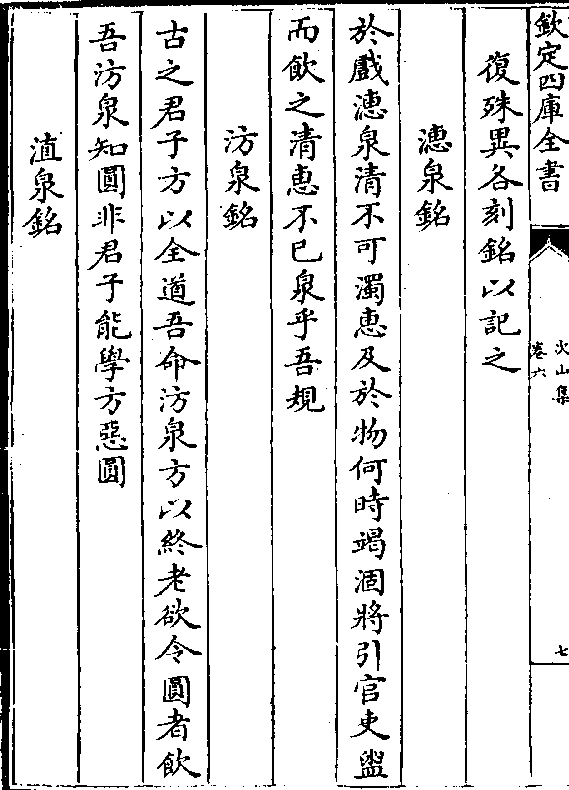 欽定四庫全書
次山集
卷六
七
復殊異各刻銘以記之
漶泉銘
於戲漶泉清不可濁惠及於物何時竭涸將引官吏盥
而飲之清惠不已泉乎吾規
汸泉銘
古之君子方以全道吾命汸泉方以終老欲令圓者飲
吾汸泉知圓非君子能學方惡圓
淔泉銘